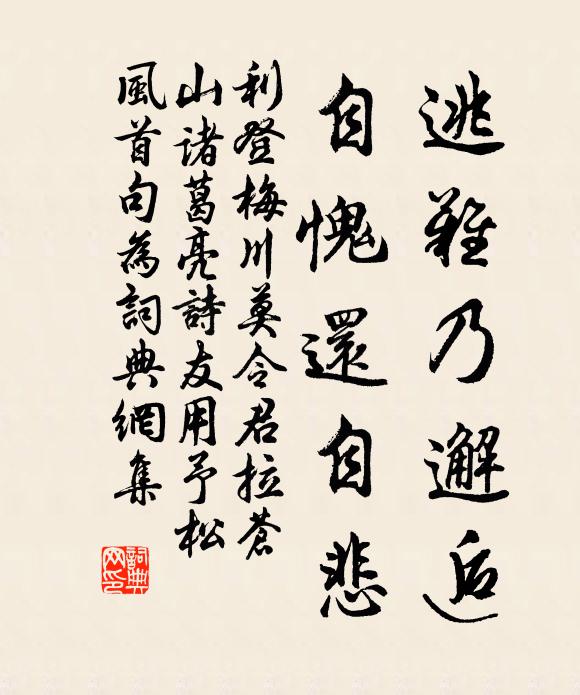 逃難乃邂逅
自愧還自悲
利登梅川莫令君拉蒼
山諸葛亮詩友用予松
風首句為詞典網集
詞典
网印